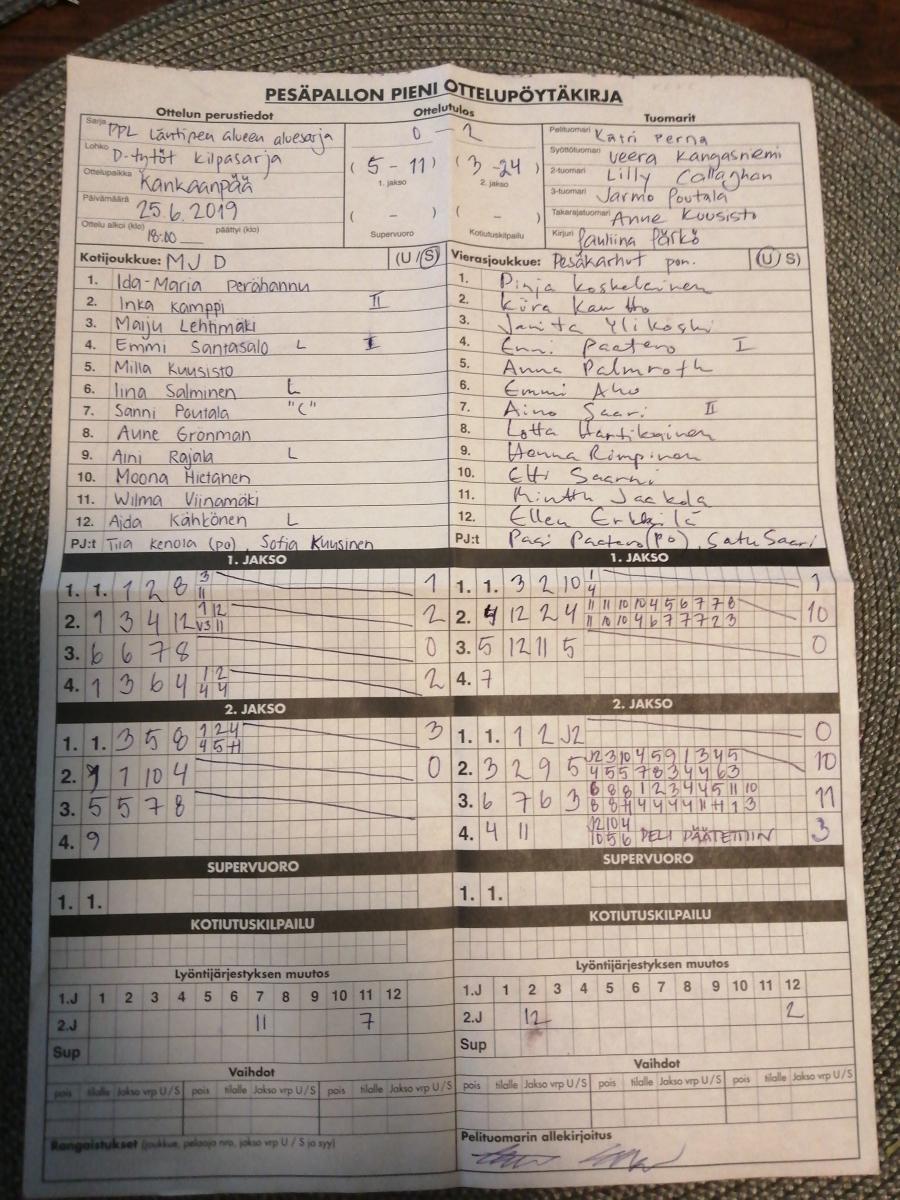 PESÄPALLON PIENI OTTELUPÖYTÄKIRJA
Ottelun perustiedot
Sarja PPL Läntinen alueen aluesarja
Lohko D-tytöt kilpasarja
Ottelupaikka Kankaanpää
Päivämäärä 25.6.2019
Ottelu alkoi (klo) 18:00 päättyi (klo)
Ottelutulos
0 - 2
( 5 - 11 ) ( 3 - 24 )
1. jakso 2. jakso
( - ) ( - )
Supervuoro Kotiutuskilpailu
Tuomarit
Pelituomari Katri Perna
Syöttötuomari Veera Kangasniemi
2-tuomari Lilly Callaghan
3-tuomari Jarmo Poutala
Takarajatuomari Anne Kuusisto
Kirjuri Pauliina Pärkö
Kotijoukkue: MJ D (U/S)
1. Ida-Maria Perähannu
2. Inka Kamppi II
3. Maiju Lehtimäki
4. Emmi Santasalo L I
5. Milla Kuusisto
6. Iina Salminen L
7. Sanni Poutala "C"
8. Aune Grönman
9. Aini Rajala L
10. Moona Hietanen
11. Wilma Viinamäki
12. Aida Kähkönen L
PJ:t Tiia Kenola (po), Sofia Kuusinen
Vierasjoukkue: Pesäkarhut pun. (U/S)
1. Pinja Koskelainen
2. Kiira Kautto
3. Janita Ylikoski
4. Enni Paatero I
5. Anna Palmroth
6. Emmi Aho
7. Aino Saari II
8. Lotta Hartikainen
9. Henna Rimpinen
10. Etti Saarni
11. Minttu Jaakola
12. Ellen Erkkilä
PJ:t Pasi Paatero (po), Satu Saari
1. JAKSO
1. 1. 1 2 8 3 11 1
2. 1 3 4 12 1 12 V3 11 2
3. 6 6 7 8 0
4. 1 3 6 4 1 2 4 4 2
2. JAKSO
1. 1. 3 5 8 1 2 4 4 5 H 3
2. 1 1 10 4 0
3. 5 5 7 8
4. 9
SUPERVUORO
1. 1.
KOTIUTUSKILPAILU
Lyöntijärjestyksen muutos
1.J 1 2 3 4 5 6 7 8 9 10 11 12
2.J 11 7
Sup
Vaihdot
pois tilalle Jakso vrp U/S pois tilalle Jakso vrp U/S pois tilalle Jakso vrp U/S
Rangaistukset (joukkue, pelaaja nro, jakso vrp U / S ja syy)
1. JAKSO
1. 1. 3 2 10 1 4 1
2. 4 12 2 4 11 11 10 10 4 5 6 7 7 8
11 10 10 4 6 7 7 7 2 3 10
3. 5 12 11 5 0
4. 7
2. JAKSO
1. 1. 1 2 J2 0
2. 3 2 9 5 J2 3 10 4 5 9 1 3 4 5
4 5 5 7 8 3 4 4 6 3 10
3. 6 7 6 3 6 8 8 1 2 3 4 4 5 11 10
8 8 H 4 4 4 4 11 H 1 3 11
4. 4 11 J2 10 4
10 5 6 PELI PÄÄTETTIIN 3
SUPERVUORO
1. 1.
KOTIUTUSKILPAILU
Lyöntijärjestyksen muutos
1.J 1 2 3 4 5 6 7 8 9 10 11 12
2.J 12 2
Sup
Vaihdot
pois tilalle Jakso vrp U/S pois tilalle Jakso vrp U/S pois tilalle Jakso vrp U/S
Pelituomarin allekirjoitus